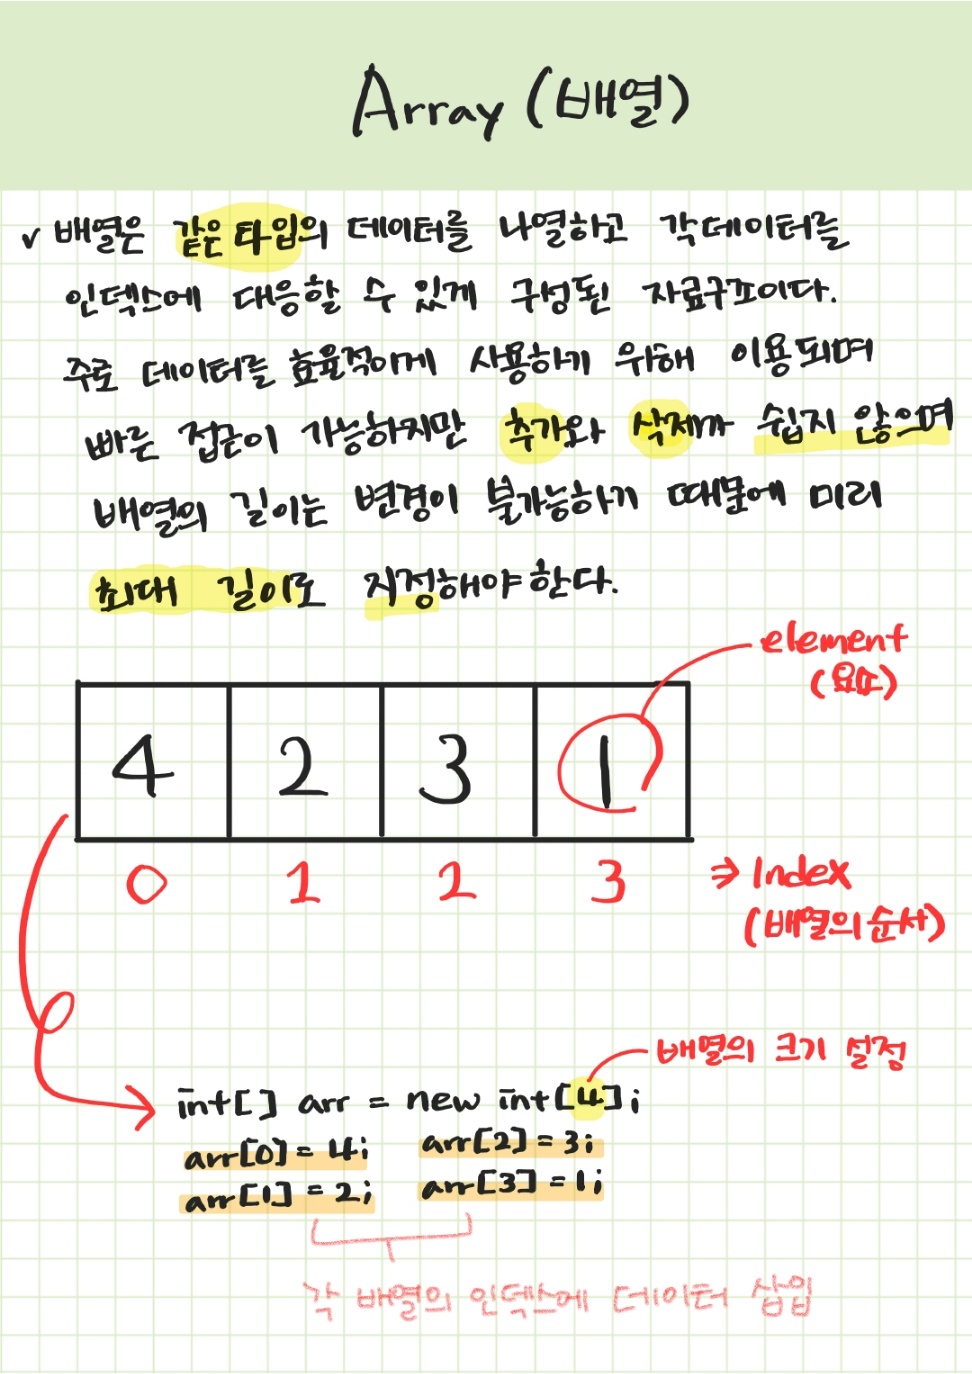 Array (배열)
✓ 배열은 같은 타입의 데이터를 나열하고 각 데이터를
인덱스에 대응할 수 있게 구성된 자료구조이다.
주로 데이터를 효율적이게 사용하기 위해 이용되며
빠른 접근이 가능하지만 추가와 삭제가 쉽지 않으며
배열의 길이는 변경이 불가능하기 때문에 미리
최대 길이로 지정해야 한다.
element
(요소)
4 2 3 1
0 1 2 3 ⇒ Index
(배열의 순서)
배열의 크기 설정
int[] arr = new int[4];
arr[0] = 4; arr[2] = 3;
arr[1] = 2; arr[3] = 1;
각 배열의 인덱스에 데이터 삽입